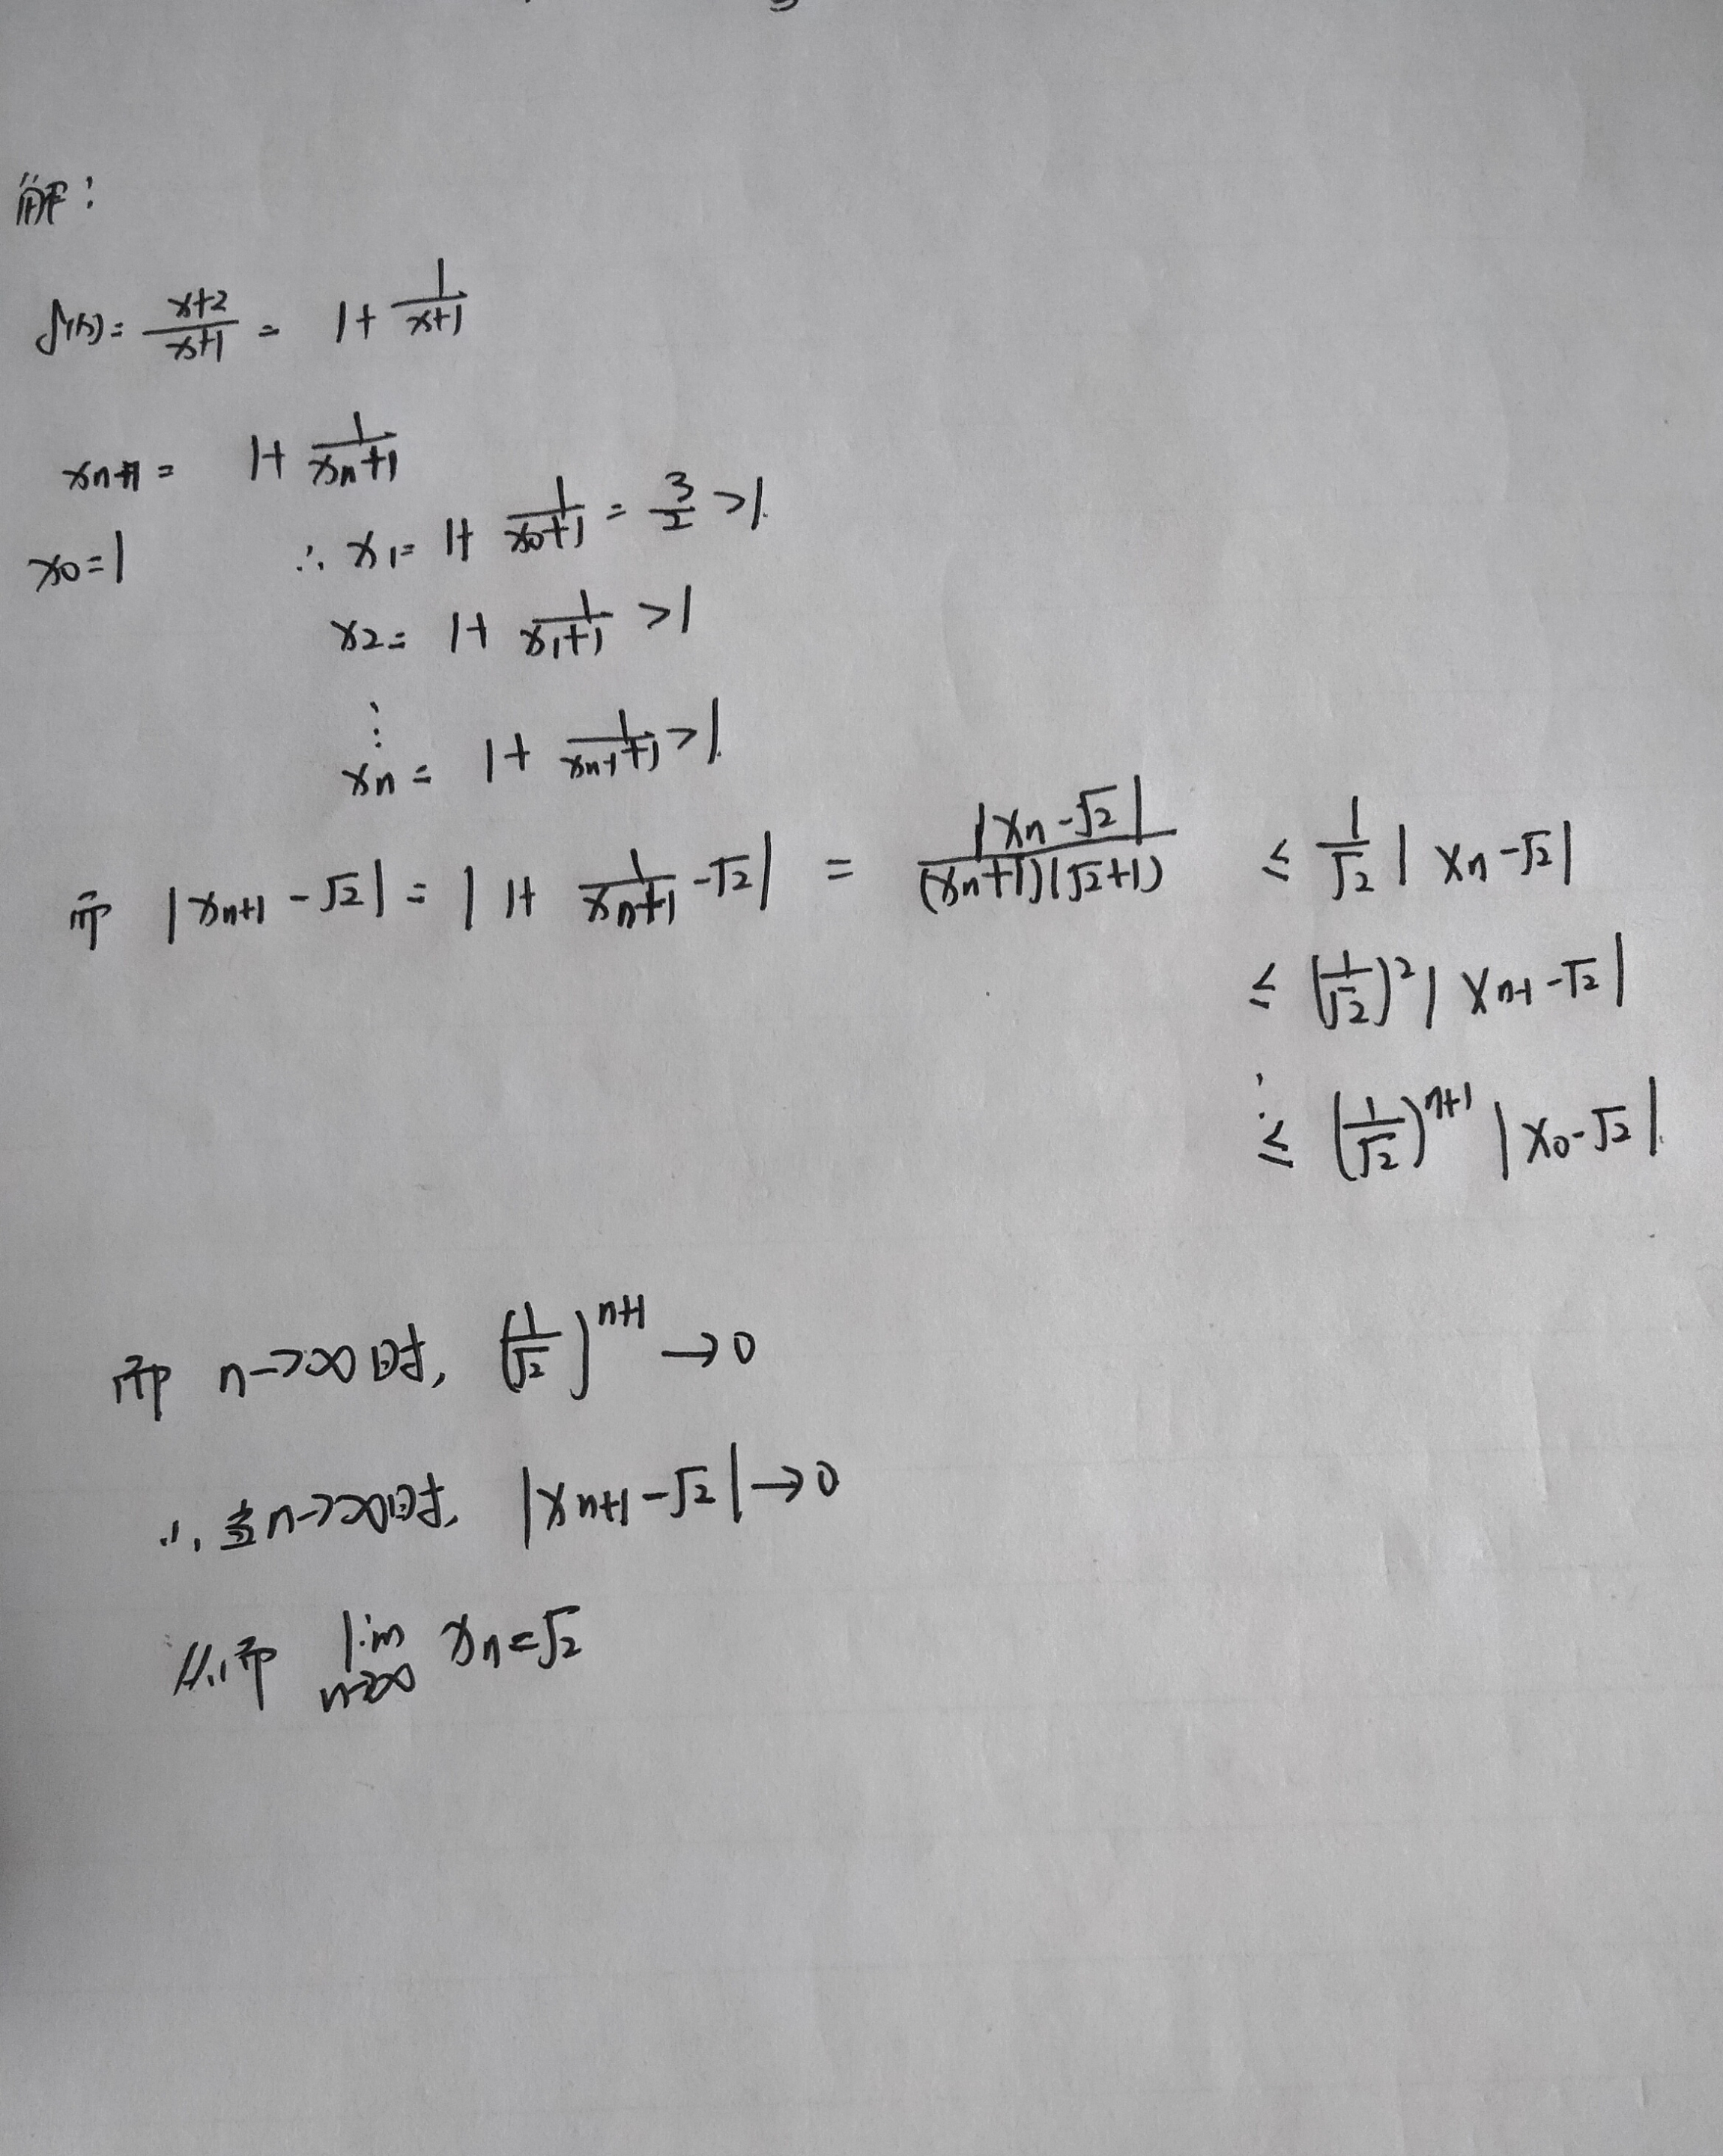 解:
f(x)= \frac{x+2}{x+1} = 1+ \frac{1}{x+1}
x_{n+1} = 1+ \frac{1}{x_n+1}
x_0=1 ∴ x_1= 1+ \frac{1}{x_0+1} = \frac{3}{2} >1.
x_2= 1+ \frac{1}{x_1+1} >1
⋮
x_n = 1+ \frac{1}{x_{n-1}+1} >1.
即 |x_{n+1} - √2| = | 1+ \frac{1}{x_n+1} -√2| = \frac{|x_n-√2|}{(x_n+1)(√2+1)} ≤ \frac{1}{√2} | x_n -√2|
≤ (\frac{1}{√2})^2 | x_{n-1} -√2|
⋮
≤ (\frac{1}{√2})^{n+1} | x_0-√2|.
即 n→∞时, (\frac{1}{√2})^{n+1} →0
∴ 当n→∞时, |x_{n+1}-√2|→0
即 \lim_{n→∞} x_n=√2